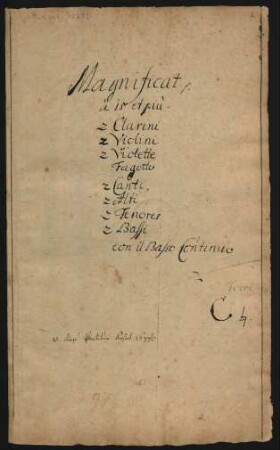 Magnificat,
à 15 et più
2 Clarini
2 Violini
2 Violette
Fagotto
2 Canti,
2 Alti
2 Tenores
2 Bassi
con il Basso Continuo
C h.